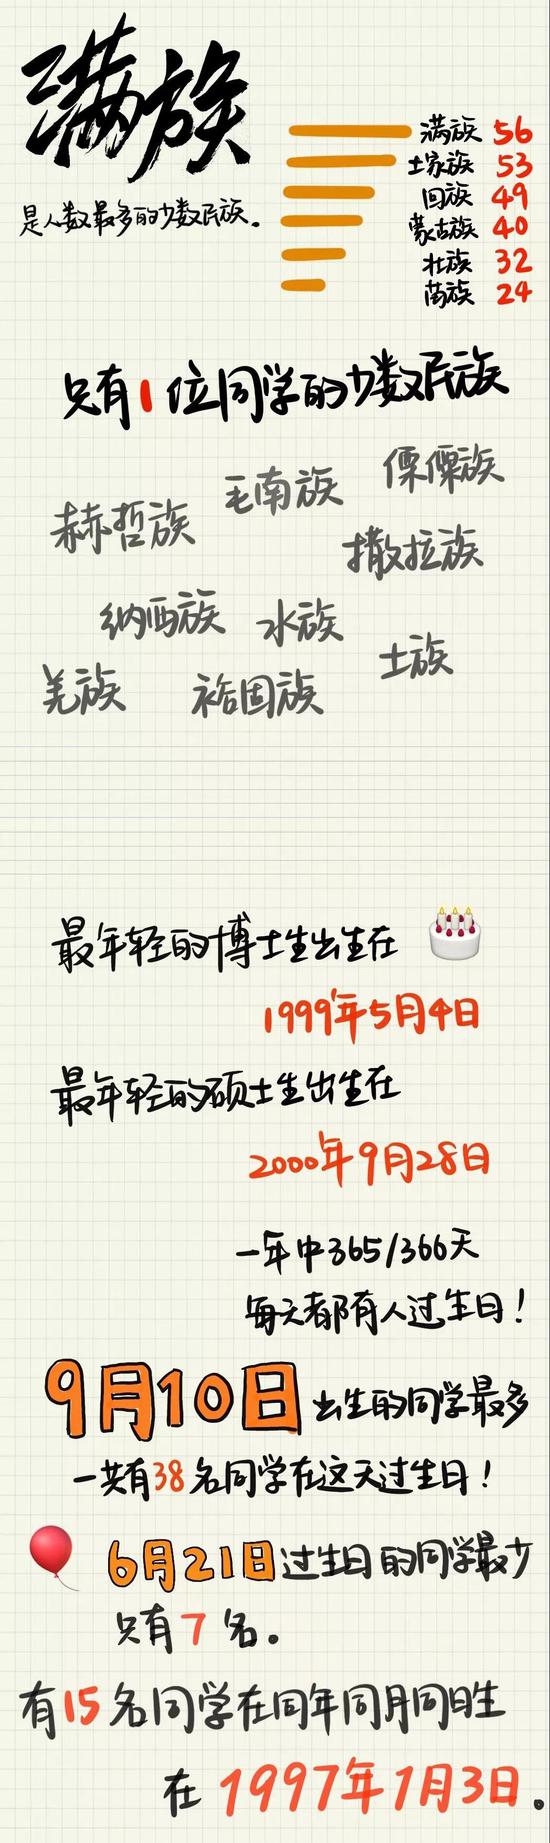 满族
是人数最多的少数民族。
满族 56
土家族 53
回族 49
蒙古族 40
壮族 32
苗族 24
只有1位同学的少数民族
傈僳族
毛南族
赫哲族
撒拉族
纳西族 水族
土族
羌族 裕固族
最年轻的博士生出生在
1999年5月4日
最年轻的硕士生出生在
2000年9月28日
一年中365/366天
每天都有人过生日!
9月10日出生的同学最多
一共有38名同学在这天过生日!
6月21日过生日的同学最少
只有7名。
有15名同学在同年同月同日生
在1997年1月3日。